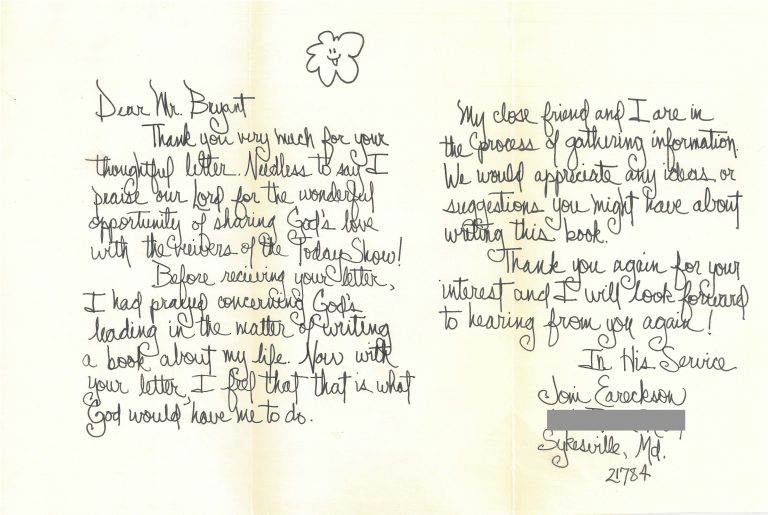 Dear Mr. Bryant
Thank you very much for your
thoughtful letter. Needless to say I
praise our Lord for the wonderful
opportunity of sharing God's love
with the viewers of the Today Show!
Before reciving your letter,
I had prayed concerning God's
leading in the matter of writing
a book about my life. Now with
your letter, I feel that that is what
God would have me to do.
My close friend and I are in
the process of gathering information.
We would appreciate any ideas or
suggestions you might have about
writing this book.
Thank you again for your
interest and I will look forward
to hearing from you again!
In His Service
Joni Eareckson
Sykesville, Md.
21784